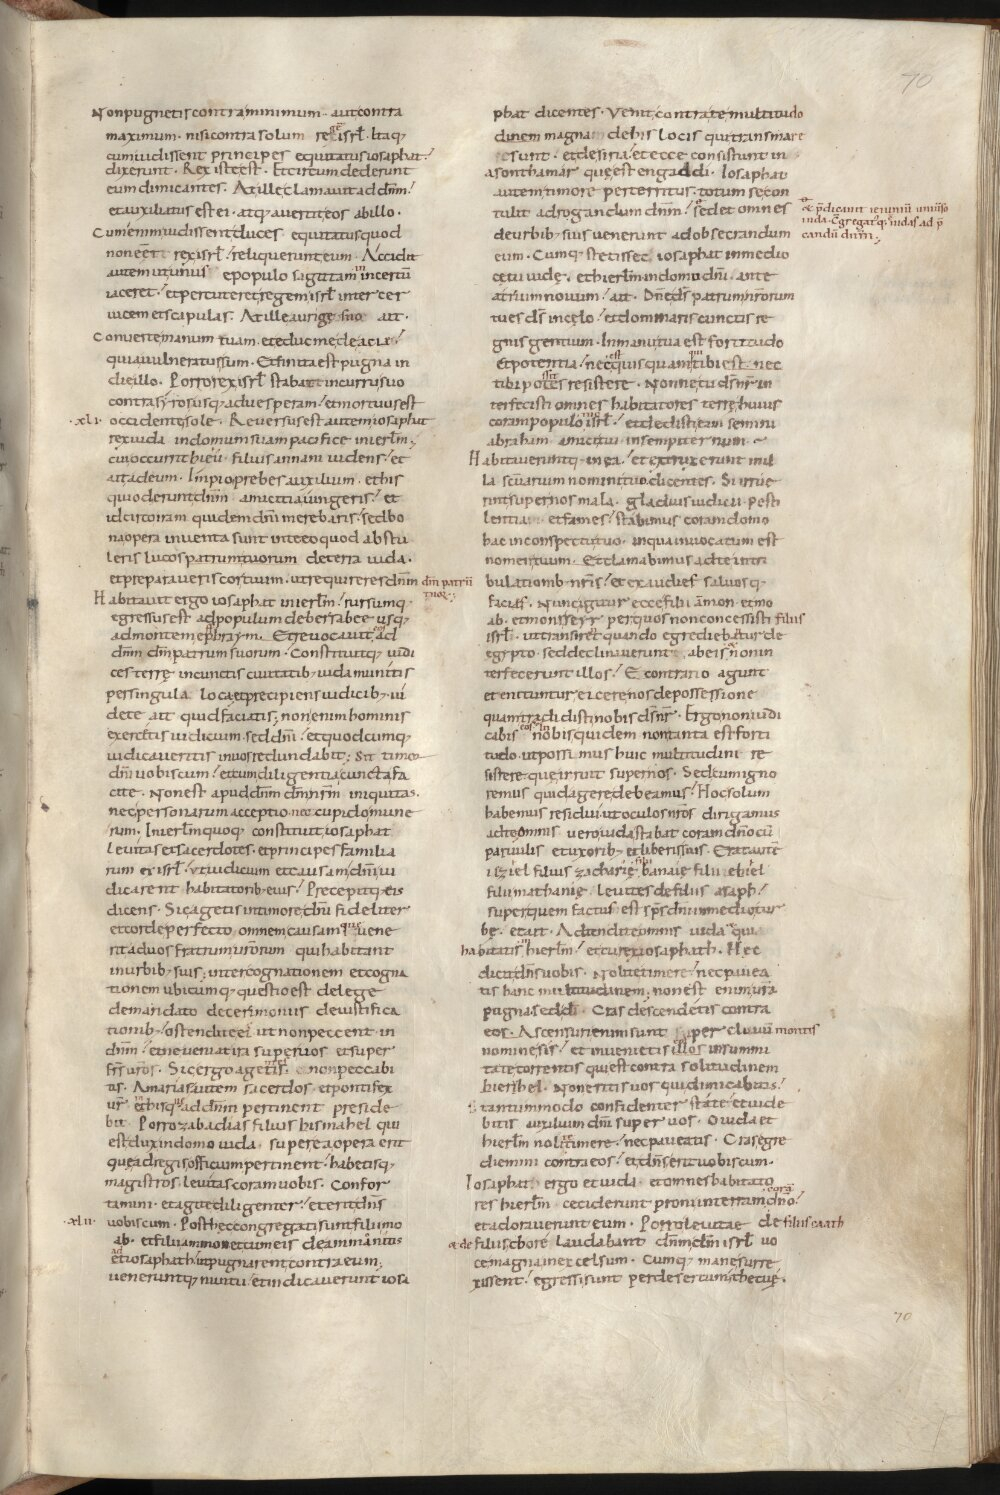 70
Non pugnetis contra minimum. aut contra
maximum. nisi contra solum regē isrl̄. Itaq;
cum uidissent principes equitatus iosaphat.
dixerunt. Rex iste est. Et circumdederunt
eum dimicantes. At ille clamauit ad dn̄m.
et auxiliatus est ei. atq; auertit eos ab illo.
Cum enim uidissent duces equitatus quod
non eēt rex isrl̄. reliquerunt eum. Accidit
autem ut unus e populo sagittam in incertū
iaceret. et percuteret regem isrl̄ inter cer
uicem et scapulas. At ille aurige suo ait.
Conuerte manum tuam. et educ me de acie.
quia uulneratus sum. Et finita est pugna in
die illo. Porro rex isrl̄ stabat in curru suo
contra syros usq; ad uesperam. et mortuus est
.xli. occidente sole. Reuersus est autem iosaphat
rex iuda in domum suam pacifice in ierlm̄.
cui occurrit hieu filius annani uidens. et
ait ad eum. Impio prebes auxilium. et his
qui oderunt dn̄m amicitia iungeris. et
idcirco iram quidem dn̄i merebaris. sed bo
na opera inuenta sunt in te eo quod abstu
leris lucos patrum tuorum de terra iuda.
et preparaueris cor tuum. ut requireres dn̄m dm̄ patrū
tuoꝝ.
Habitauit ergo iosaphat in ierlm̄. rursumq;
egressus est ad populum de bersabee usq;
ad montem ephraym. Et reuocauit eos ad
dn̄m dm̄ patrum suorum. Constituitq; iudi
ces terre in cunctis ciuitatib; iuda munitis
per singula loca. et precipiens iudicib; ui
dete ait quid faciatis. non enim hominis
exercetis iudicium. sed dn̄i. et quodcumq;
iudicaueritis in uos redundabit. Sit timor
dn̄i uobiscum. et cum diligentia cuncta fa
cite. Non est apud dn̄m dm̄ nrm̄ iniquitas.
nec personarum acceptio. nec cupido mune
rum. In ierlm̄ quoq; constituit iosaphat
leuitas et sacerdotes. et principes familia
rum ex isrl̄. ut iudicium et causam dn̄i iu
dicarent habitatorib; eius. Precepitq; eis
dicens. Sic agetis in timore dn̄i fideliter
et corde perfecto. omnem causam que uene
rit ad uos fratrum ur̄orum qui habitant
in urbib; suis. inter cognationem et cogna
tionem ubicumq; questio est de lege
de mandato de cerimoniis de iustifica
tionib; ostendite ei. ut non peccent in
dn̄m. et ne ueniat ira super uos et super
frs̄ uros̄. Sic ergo agetis et non peccabi
tis. Amarias autem sacerdos. et pontifex
ur̄ in his que ad dn̄m pertinent preside
bit. Porro zabadias filius hismahel qui
est dux in domo iuda. super ea opera erit
que ad regis officium pertinent. habetisq;
magistros leuitas coram uobis. Confor
tamini. et agite diligenter. et erit dn̄s
.xlii. uobiscum. Post hec congregati sunt filii mo
ab. et filii ammon et cum eis de ammanitis
ad iosaphath. ut pugnarent contra eum.
ueneruntq; nuntii. et indicauerunt iosa
phat dicentes. Venit contra te multitudo
de his locis qui trans mare
sunt. et de siria. et ecce consistunt in
asonthamar que est engaddi. Iosaphat
autem timore perterritus. totum se con
tulit ad rogandum dn̄m. sed et omnes
& p̄dicauit ieiuniū uniuso
iuda. Cgregatusq; iudas ad p̄
candū dn̄m.
de urbib; suis uenerunt ad obsecrandum
eum. Cumq; stetisset iosaphat in medio
cetu iude. et hierlm̄ in domo dn̄i. ante
atrium nouum. ait. Dn̄e ds̄ patrum nr̄orum
tu es ds̄ in celo. et dominaris cunctis re
gnis gentium. In manu tua est fortitudo
et potentia. nec est quisquam qui tibi
possit resistere. Nonne tu ds̄ nr̄ in
terfecisti omnes habitatores terre huius
coram populo tuo isrl̄. et dedisti eam semini
abraham amici tui in sempiternum.
Habitaueruntq; in ea. et extruxerunt in il
la sc̄uarium nomini tuo dicentes. Si irrue
rint super nos mala. gladius iudicii. pesti
lentia. et fames. stabimus coram domo
hac in conspectu tuo. in qua inuocatum est
nomen tuum. Et clamabimus ad te in tri
bulationib; nr̄is. et exaudies saluosq;
facias. Nunc igitur ecce filii ammon. et mo
ab. et mons seyr per quos non concessisti filiis
isrl̄. ut transirent quando egrediebantur de
egypto. sed declinauerunt ab eis. et non in
terfecerunt illos. E contrario agunt
et nituntur eicere nos de possessione
quam tradidisti nobis ds̄ nr̄. Ergo non iudi
cabis eos. In nobis quidem non tanta est forti
tudo. ut possimus huic multitudini re
sistere. que irruit super nos. Sed cum igno
remus quid agere debeamus. Hoc solum
habemus residui. ut oculos nr̄os dirigamus
ad te. omnis uero iuda stabat coram dn̄o cū
paruulis et uxorib; et liberis suis. Erat autē
iaziel filius zacharie. filii banaie filii ehiel
filii mathanie. leuites de filiis asaph.
super quem factus est sp̄s dn̄i in medio tur
be. et ait. Adtendite omnis iuda. et qui
habitatis in hierlm̄. et tu rex iosaphath. Hec
dicit dn̄s uobis. Nolite timere. nec pauea
tis hanc multitudinem. non est enim ur̄a
pugna sed di. Cras descendetis contra
eos. Ascensuri enim sunt per cliuum montis
nomine sis. et inuenietis illos in summi
tate torrentis qui est contra solitudinem
hieruhel. Non eritis uos qui dimicabitis.
Stantummodo confidenter state. et uide
bitis auxilium dn̄i super uos. O iuda et
hierlm̄ nolite timere. nec paueatis. Cras egre
diemini contra eos. et dn̄s erit uobiscum.
Iosaphat ergo et iuda et omnes habitato
res hierlm̄ ceciderunt proni in terram corā dn̄o.
et adorauerunt eum. Porro leuitae de filiis caath
& de filiis chore laudabant dn̄m dm̄ isrl̄ uo
ce magna in excelsum. Cumq; mane surre
xissent. egressi sunt per desertum thecue.
70